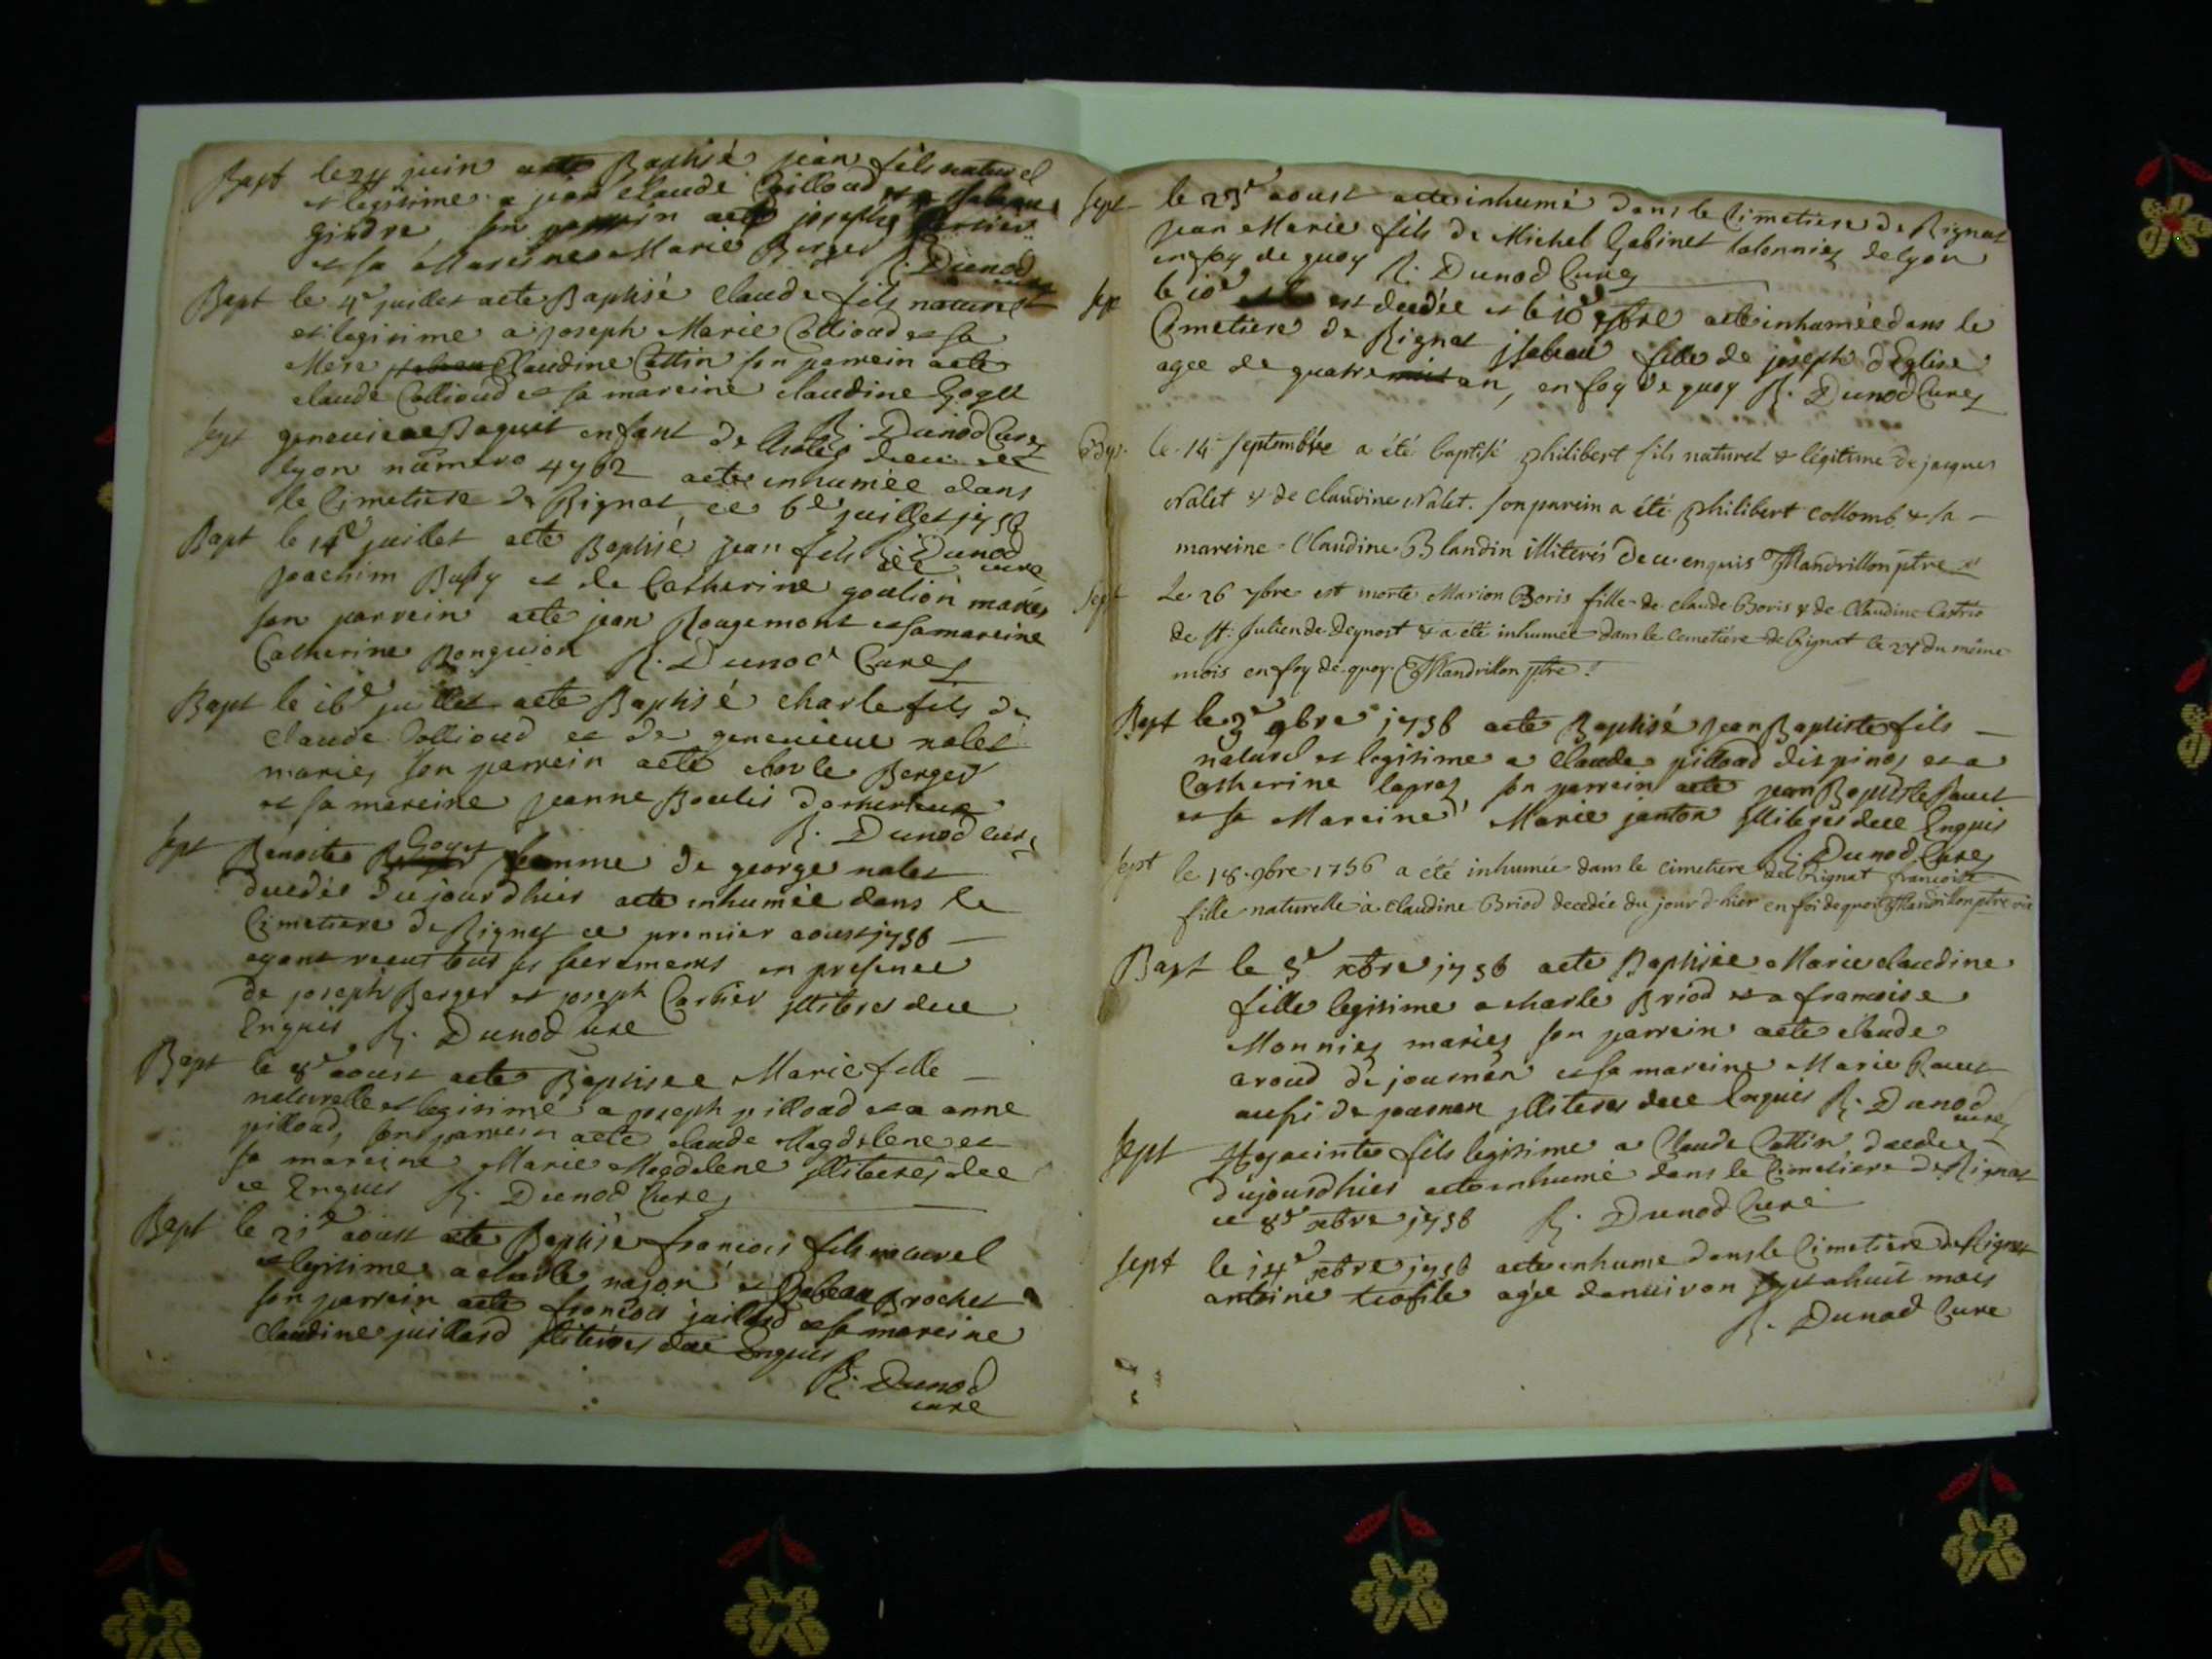 Bapt le 24 juin aete Baptisé jean fils naturel
et legitime a jean claude Collioud et a Isabeau
gindre son parrein aete joseph Cartier
et sa Mareine Marie Berger R. Dunod
curé
Bapt le 4e juillet aete Baptisé Claude fils naturel
et legitime a joseph Marie Collioud et sa
Mere Claudine Cottin son parrein aete
claude Collioud et sa mareine claudine Goyet
R. Dunod Curé
Sept genevieve Baguet enfant de lhotel dieu de
lyon numero 4762 aete inhumée dans
le Cimetiere de Rignat ce 6e juillet 1756
R. Dunod
curé
Bapt le 14e juillet aete Baptisé jean fils de
joachim Bussy et de Catherine goulion mariés
son parrein aete jean Rougemont et sa mareine
Catherine Bonguion R. Dunod Curé
Bapt le 16e juillet aete Baptisé charle fils de
Claude Collioud et de genevieve nalet
mariés son parrein aete charle Berger
et sa mareine jeanne Boulis
R. Dunod curé
Sept Benoite Goyet femme de george nalet
decedée dujourdhier aete inhumée dans le
Cimetiere de Rignat ce premier aoust 1756
ayant receut tous ses sacremens en presence
de joseph Berger et joseph Cartier illiteres dece
Enquis R. Dunod curé
Bapt le 8e aoust aete Baptisee Marie fille
naturelle et legitime a joseph pilloud et a anne
pilloud, son parrein aete claude Magdelene et
sa mareine Marie Magdelene illiterés de
ce Enquis R. Dunod Curé
Bapt le 21e aoust aete Baptisé francois fils naturel
et legitime a charle et Isabeau Brochet
son parrein aete francois juillard et sa mareine
claudine juillard illiteres dece Enquis
R. Dunod
curé
Sept le 23e aoust aete inhumé dans le Cimetiere de Rignat
jean Marie fils de Michel Gabinet de lyon
en foy de quoy R. Dunod Curé
Sept le 10e est decedée et le 10e 7bre aete inhumée dans le
Cimetiere de Rignat jsabeau fille de joseph dEglise
agee de quatre an, en foy de quoy R. Dunod Curé
Bap. le 14 Septembre a été baptisé philibert fils naturel & légitime de jacques
Nalet & de Claudine Nalet. son parein a été philibert collomb & sa
mareine Claudine Blandin illiterés de ce enquis Mandrillon ptre
Sept Le 26 7bre est morte Marion Boris fille de claude Boris & de Claudine
de st. Julien de & a été inhumée dans le cemetiére de Rignat le 27 du même
mois en foy de quoy Mandrillon ptre
Bapt le 9bre 1756 aete Baptisé jean Baptiste fils
naturel et legitime a Claude pilloud et a
Catherine son parrein aete jean Baptiste
et sa Mareine Marie janton illiterés dece Enquis
R. Dunod Curé
Sept le 18 9bre 1756 a été inhumée dans le cimetiere de Rignat francoise
fille naturelle à claudine Briod decedée du jour d'hier en foi de quoi Mandrillon ptre vic
Bapt le 5e xbre 1756 aete Baptisée Marie claudine
fille legitime a charle Briod et a francoise
Monnier mariés son parrein aete claude
aroud de journan et sa mareine Marie
aussi de journan illiteres dece Enquis R. Dunod
curé
Sept Hyacinte fils legitime a Claude Cottin, decede
dujourdhier aete inhumé dans le Cimetiere de Rignat
ce 8e xbre 1756 R. Dunod Curé
Sept le 14e xbre 1756 aete inhume dans le Cimetiere de Rignat
antoine teofile agée denviron sept a huit mois
R. Dunod Curé